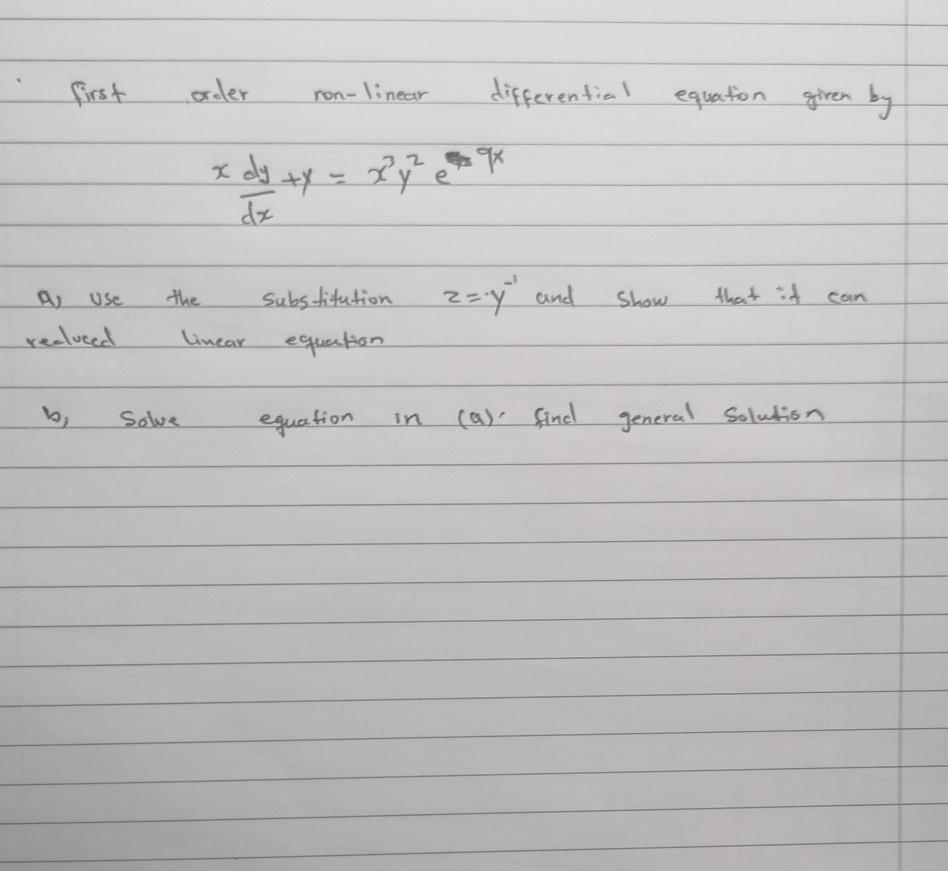 first order non-linear differential equation given by
x dy/dx + y = x³y² e^9x
a, use the substitution z = y⁻¹ and show that it can
reduced linear equation
b, Solve equation in (a). find general solution